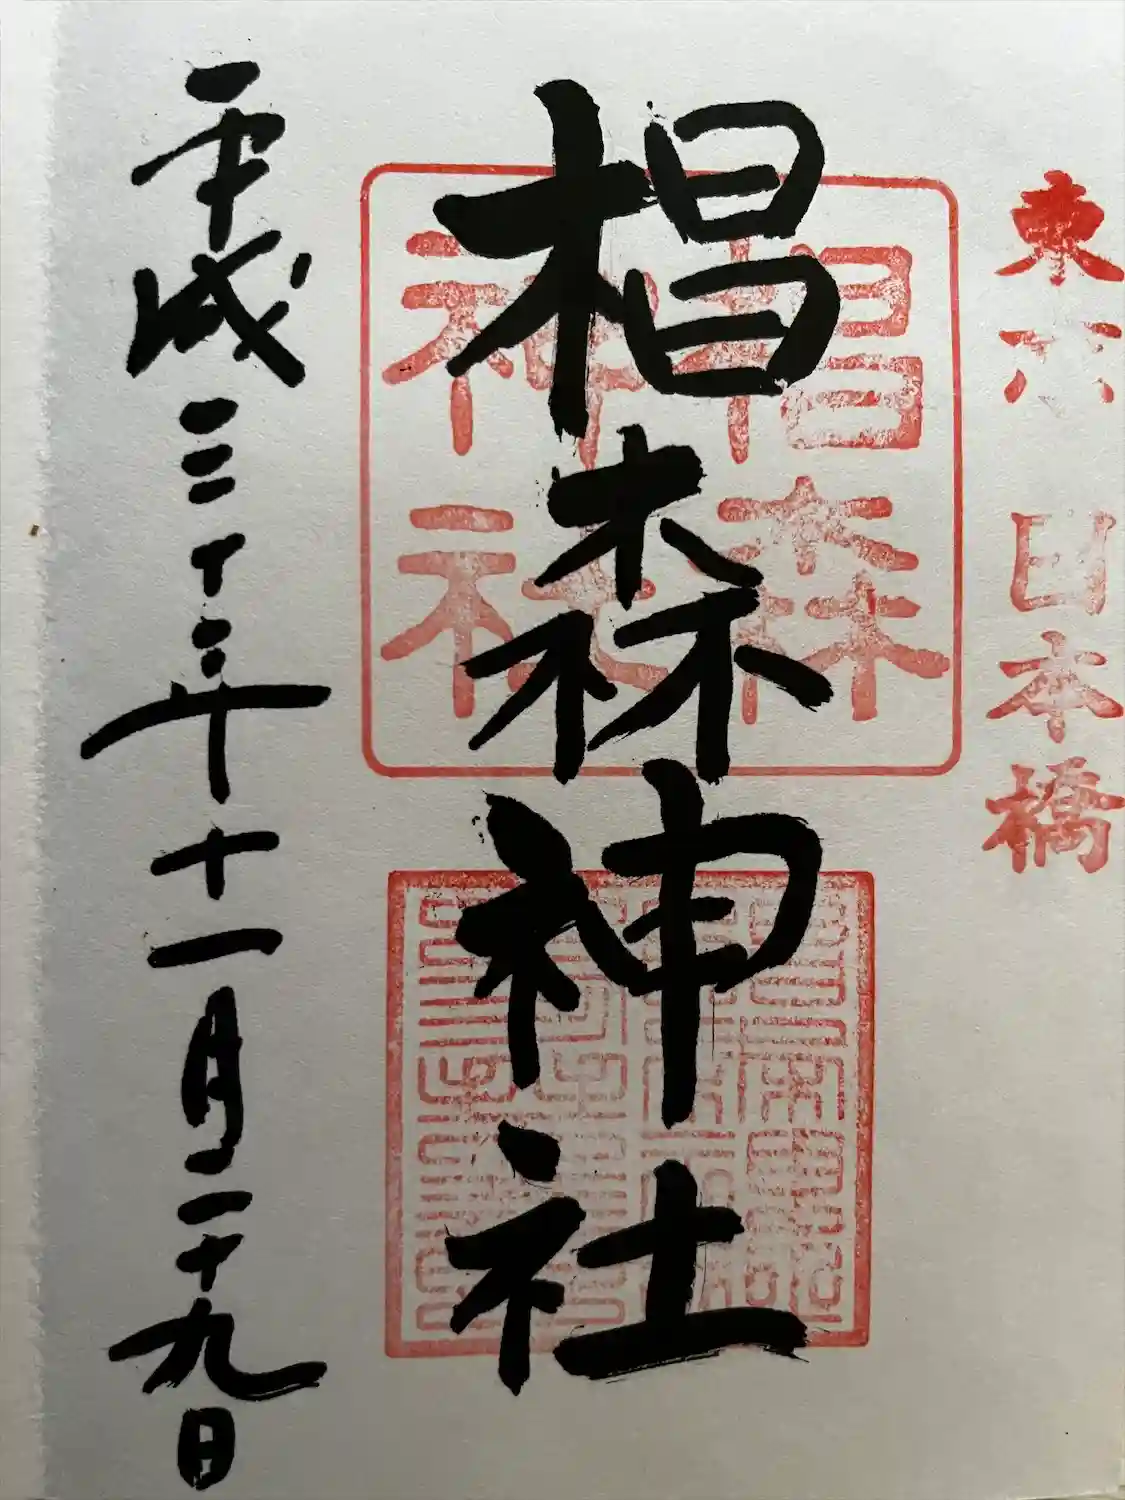 東京 日本橋
椙森神社
椙森
神社
平成三十年十一月二十九日